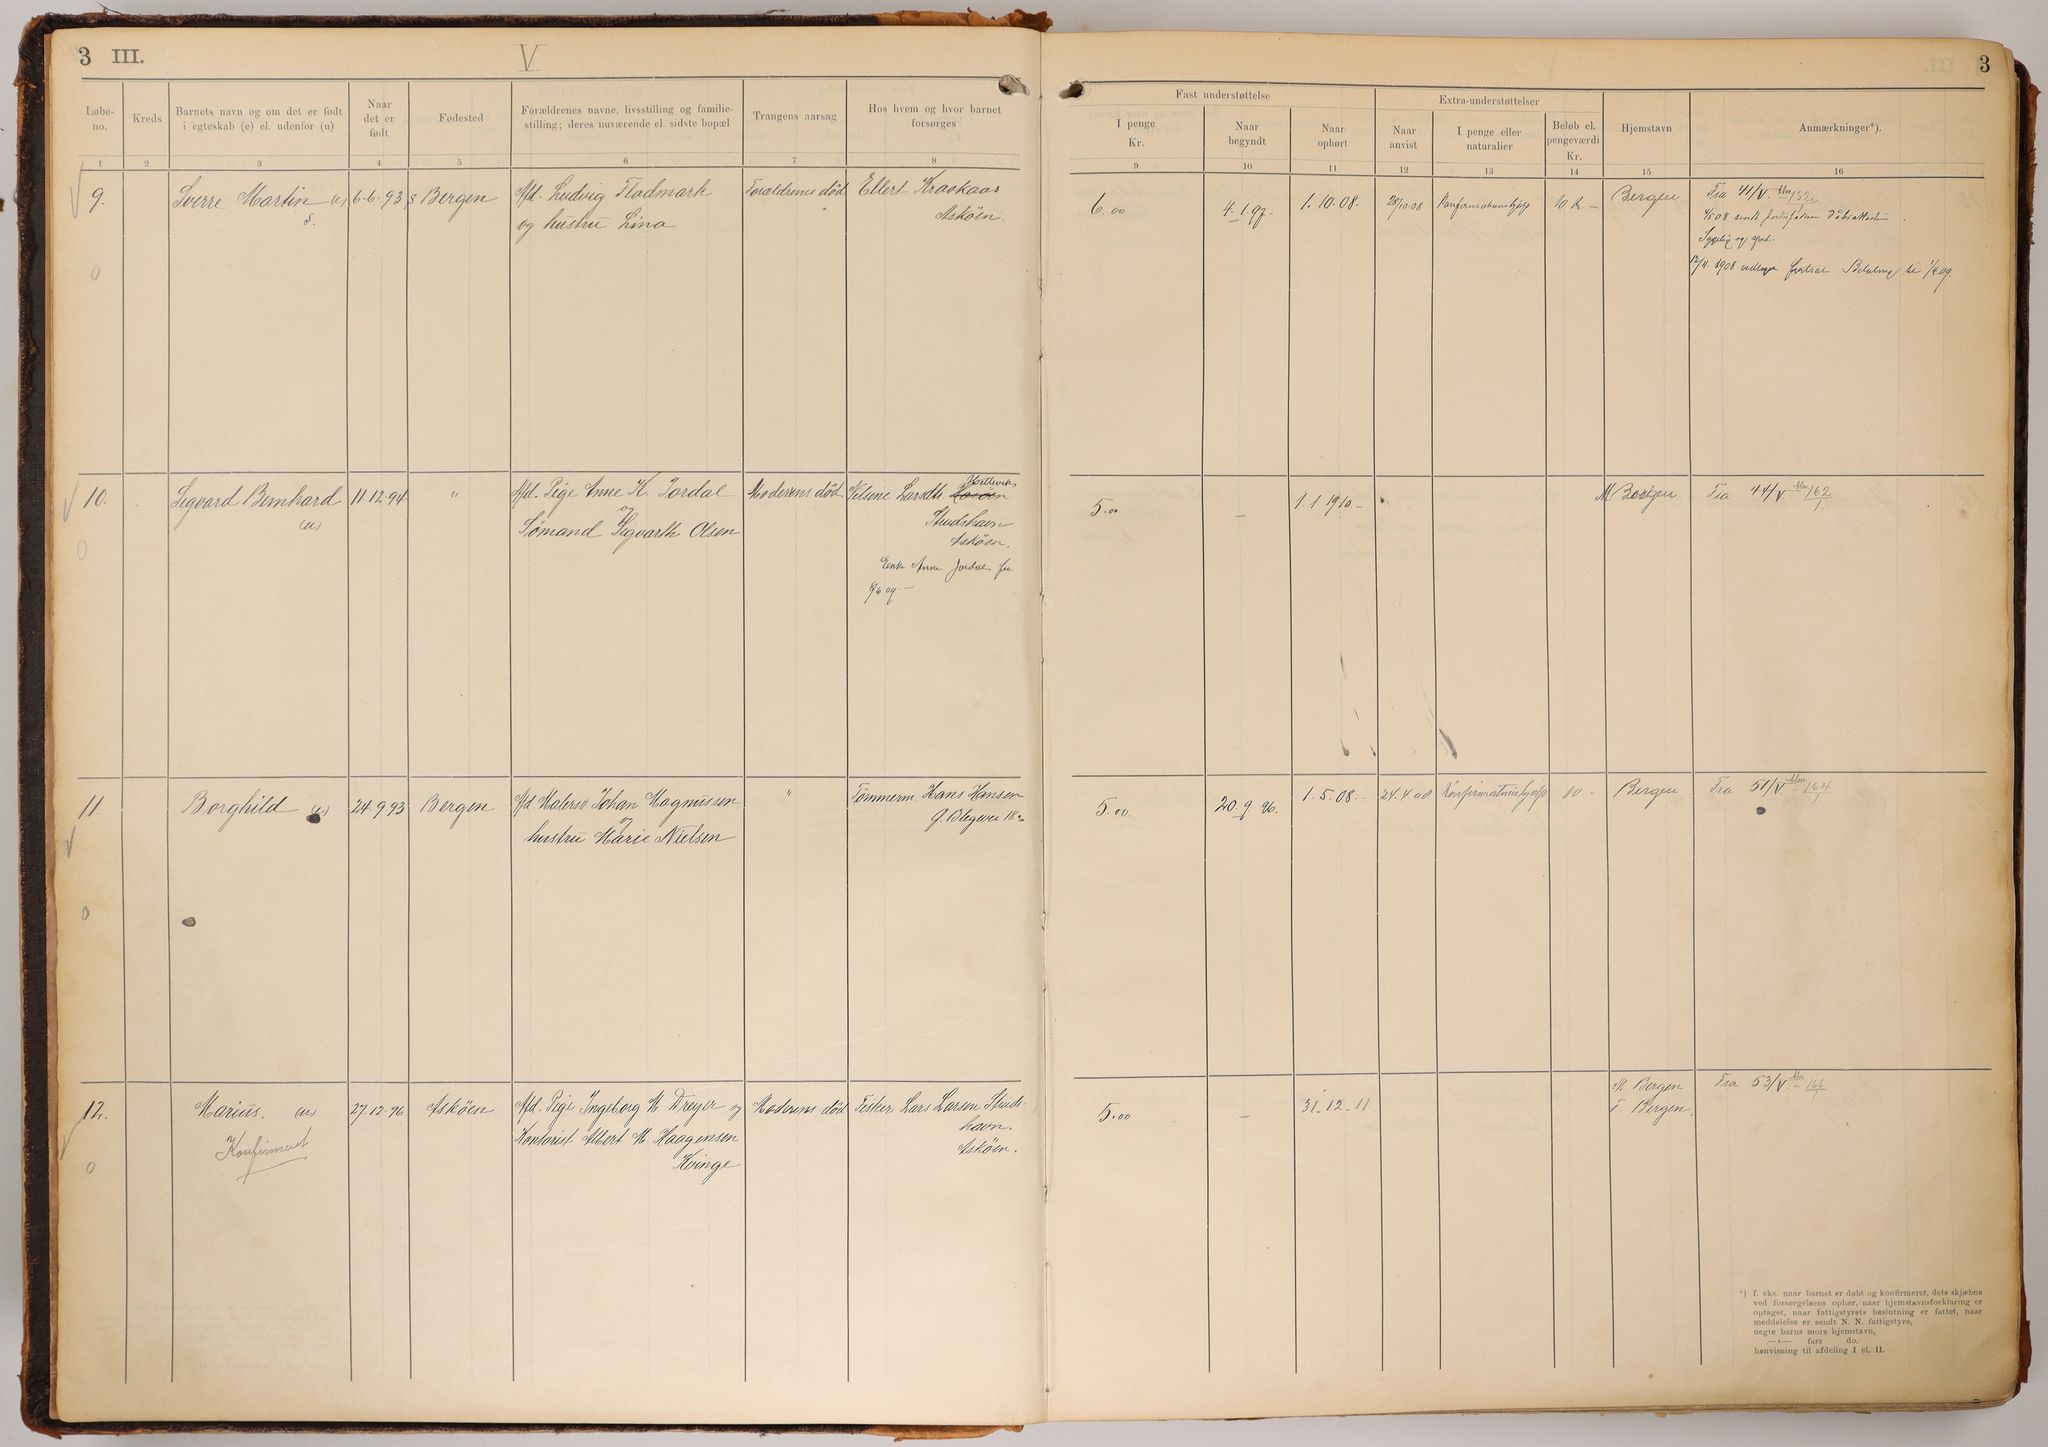 3 III.
V
3
Løbe-no.
Kreds
Barnets navn og om det er født i egteskab (e) el. udenfor (u)
Naar det er født
Fødested
Forældrenes navne, livsstilling og familie-stilling; deres nuværende el. sidste bopæl
Trangens aarsag
Hos hvem og hvor barnet forsørges
Fast understøttelse
I penge Kr.
Naar begyndt
Naar ophørt
Extra-understøttelser
Naar anvist
I penge eller naturalier
Beløb el. pengeværdi Kr.
Hjemstavn
Anmærkninger*).
1 2 3 4 5 6 7 8 9 10 11 12 13 14 15 16
9. Sverre Martin (e) 6-6-93 Bergen
Afd. Ludvig Fladmark
og hustru Lina
Forældrenes død
Ellert Kraakaas
Askøen.
6.00 4-1-97- 1.10-08- 28/10-08 Konfirmationshjelp 10 kr - Bergen
Fra 41/V. Alm 152
Sygelig og
1908 Betaling til 1/4 09
10. Sigvard Bernhard (u) 11-12-94 "
Afd. Pige Anne K. Jordal
og
Sømand Sigvarth Olsen
Moderens død
Studshavn
Askøen.
Enke Anne Jordal fra
9/6 09 -
5.00 - 1.1.1910.- M Bergen Fra 44/V Alm 162
11. Borghild (e) 24-9-93 Bergen
Afd Malersv Johan Magnussen
og
hustru Marie Nielsen
"
Tømmerm. Hans Hansen
18
5.00. 20.9.96. 1.5.08.- 24.4 08 Konfirmationshjelp 10 - Bergen Fra 51/V Alm 164
12. Marius. (u) 27-12-96 Askøen
Konfirmeret
Afd. Pige Ingeborg M Dreyer og
Kontorist Albert M. Haagensen
Hvinge
Moderens død
Fisker Lars Larsen Studs-
havn.
Askøen.
5.00 - 31.12.11
M. Bergen
F. Bergen.
Fra 53/V Alm 166
*) f. eks. naar barnet er døbt og konfirmeret, dets skjæbne
ved forsørgelsens ophør, naar hjemstavnsforklaring er
optaget, naar fattigstyrets beslutning er fattet, naar
meddelelse er sendt N. N. fattigstyre,
uegte barns mors hjemstavn,
—»— fars do.
henvisning til afdeling I el. II.